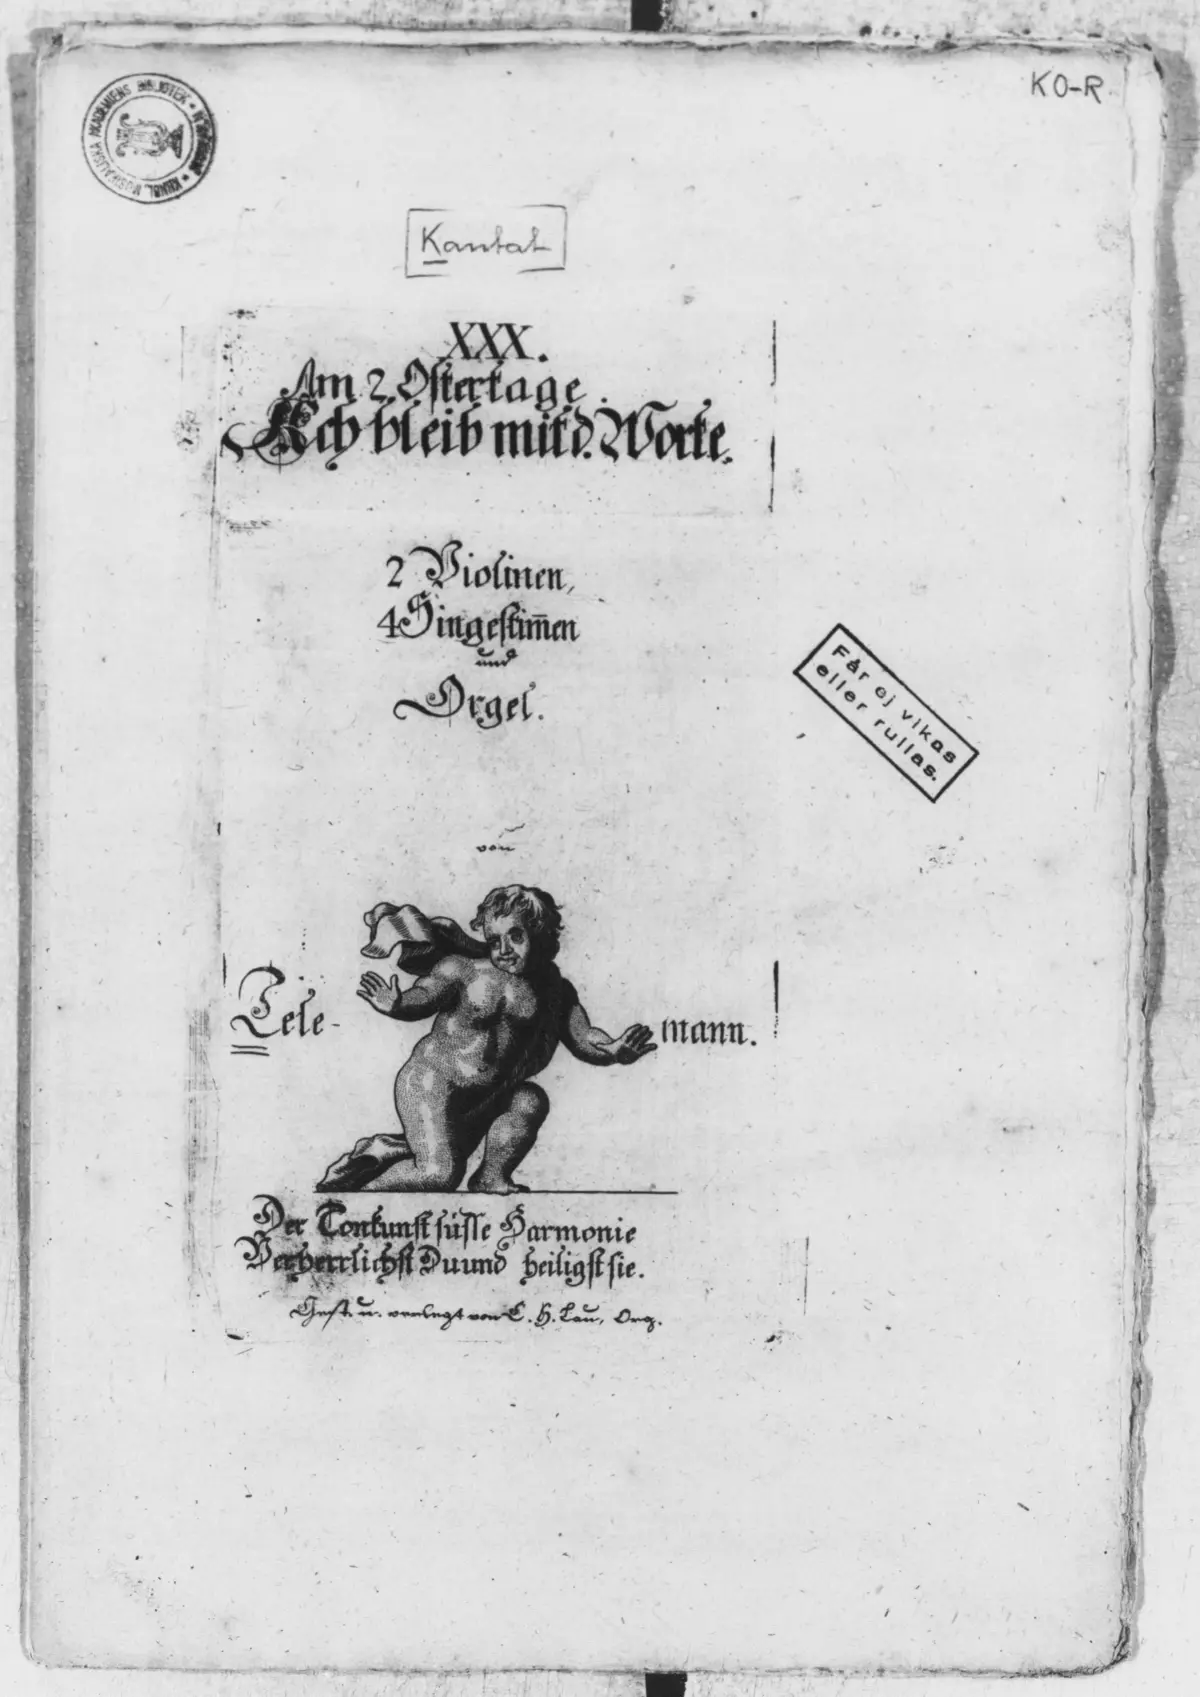 KONGL. MUSIKALISKA AKADEMIENS BIBLIOTEK
KO-R
Kantat
XXX.
Am 2. Ostertage.
Ach bleib mit d. Worte.
2 Violinen,
4 Singestim̄en
und
Orgel.
Får ej vikas
eller rullas.
von
Tele-
mann.
Der Tonkunst süsse Harmonie
Verherrlichst Du und heiligst sie.
Gest. u. verlegt von C. H. Lau, Org.